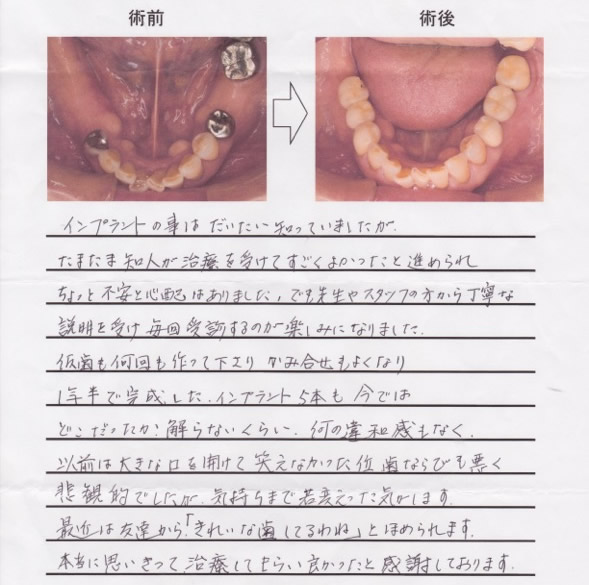 術前 術後
インプラントの事は だいたい知っていましたが、
たまたま知人が治療を受けてすごくよかったと進められ
ちょっと不安と心配はありました。でも先生やスタッフの方から丁寧な
説明を受け 毎回受診するのが楽しみになりました。
仮歯も何回も作って下さり かみ合せもよくなり
1年半で完成した。インプラント5本も 今では
どこだったか?解らないくらい、何の違和感もなく、
以前は大きな口を開けて笑えなかった位歯ならびも悪く
悲観的でしたが、気持ちまで若変えった気がします。
最近は友達から「きれいな歯してるわね」とほめられます。
本当に思いきって治療してもらい良かったと感謝しております。